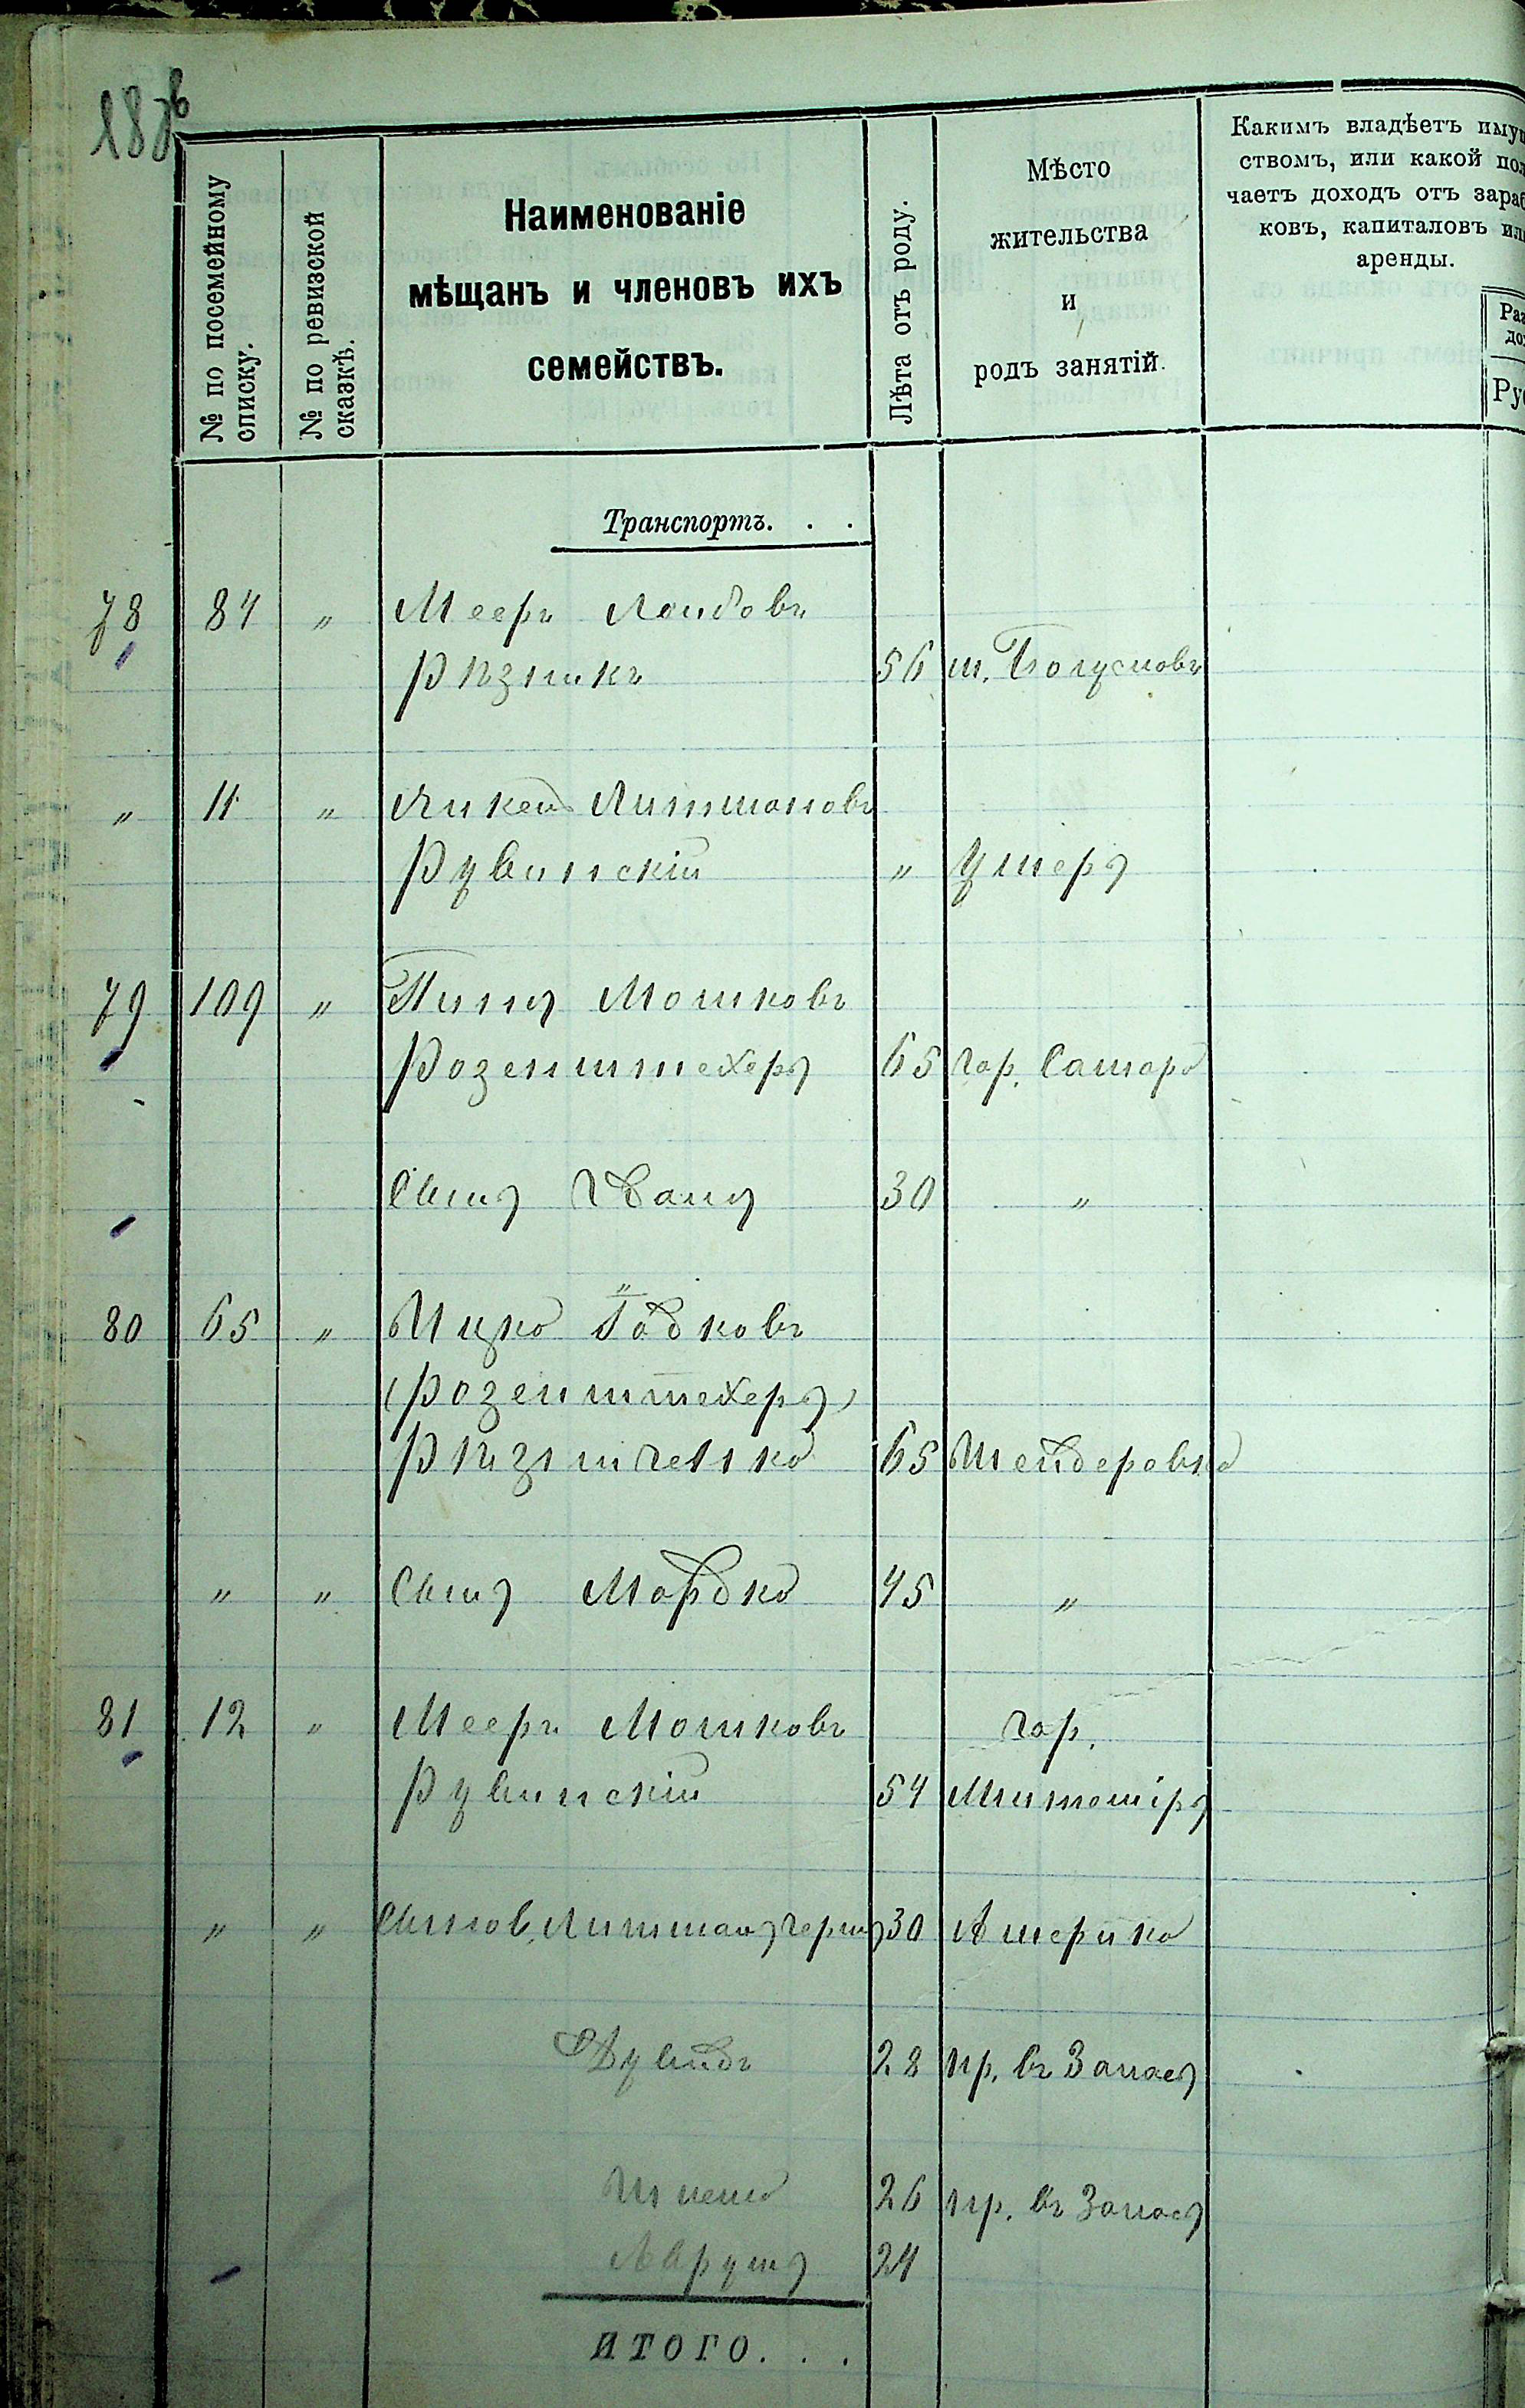 № по посемейному списку.
№ по ревизской сказкѣ.
Наименованіе
мѣщанъ и членовъ ихъ
семействъ.
Лѣта отъ роду.
Мѣсто
жительства
и
родъ занятій.
Какимъ владѣетъ иму
ствомъ, или какой пол
чаетъ доходъ отъ зараб
ковъ, капиталовъ или
аренды.
Раз
до
Ру
Транспортъ. . .
78 84 " Мееръ Лейбовъ
Рѣзникъ 56 м. Богуславъ
" 11 " Литмановъ
Рувинскій " Умеръ
79 109 " Пиня Мошковъ
Розенштехеръ 65 гор. Самара
Сынъ 30 "
80 65 " Ицко
(Розенштехеръ)
Рѣзниченко 65 Шендеровка
" " Сынъ Мордко 45 "
81 12 " Мееръ Мошковъ гор.
Рувинскій 54 Житоміръ
" " Литманъ Герш 30 Америка
Дувидъ 28 пр. въ Запасъ
26 пр. въ Запасъ
Аврумъ 24
ИТОГО. . .